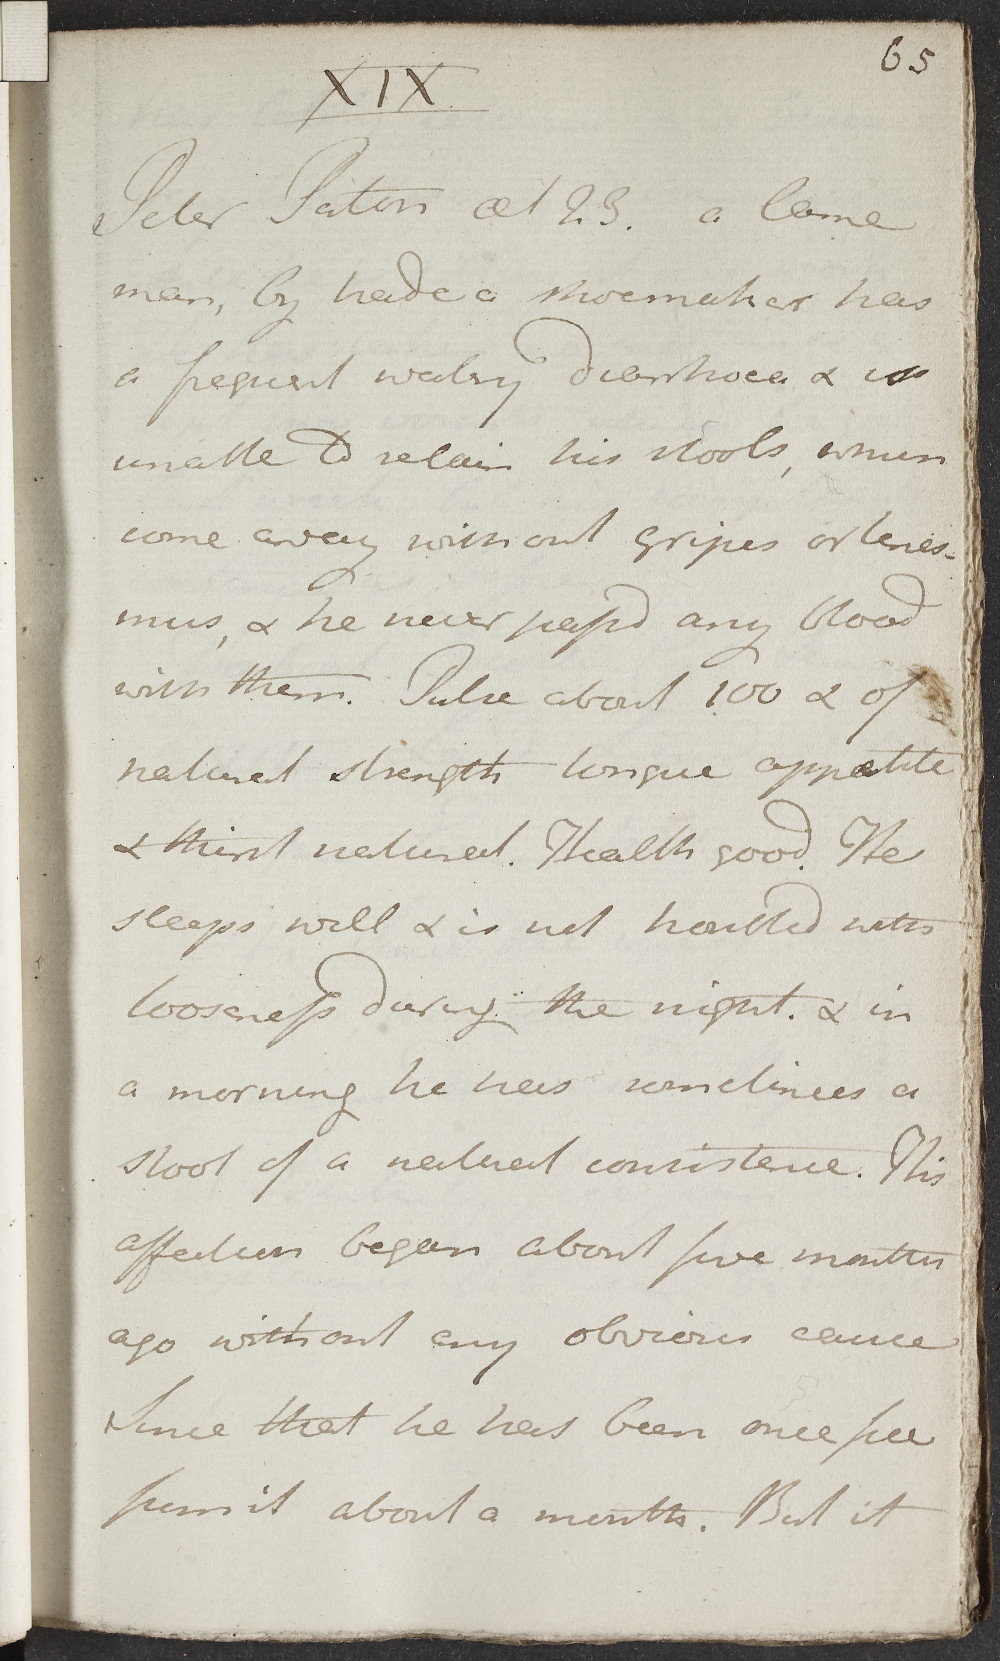 65
XIX
Peter Paton æt 23. a lame
man, by trade a shoemaker has
a frequent watery diarrhoea & is
unable to retain his stools, which
come away without gripes or tenes-
mus, & he never passd any blood
with them. Pulse about 100 & of
natural strength tongue appetite
& thirst natural. Health good. He
sleeps well & is not troubled with
looseness during the night. & in
a morning he has sometimes a
stool of a natural consistence. This
affection began about five months
ago without any obvious cause
Since that he has been once free
from it about a month. But it